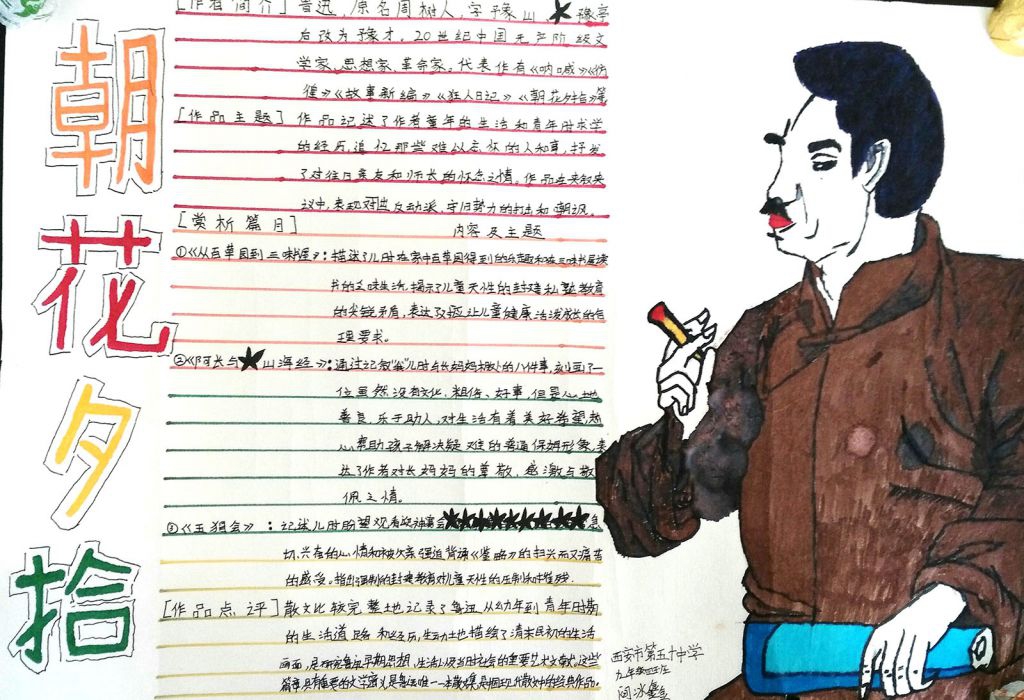 朝花夕拾
[作者简介] 鲁迅,原名周树人,字豫山、豫亭
后改为豫才。20世纪中国无产阶级文
学家、思想家、革命家。代表作有《呐喊》《彷
徨》《故事新编》《狂人日记》《朝花夕拾》等
[作品主题] 作品记述了作者童年的生活和青年时求学
的经历,追忆那些难以忘怀的人和事,抒发
了对往日亲友和师长的怀念之情。作品在夹叙夹
议中,表现对反动派、守旧势力的打击和嘲讽。
[赏析篇目] 内容及主题
①《从百草园到三味书屋》:描述了儿时在家中百草园得到的乐趣和在三味书屋读
书的乏味生活,揭示了儿童天性的封建私塾教育
的尖锐矛盾,表达了应让儿童健康活泼成长的合
理要求。
②《阿长与山海经》:通过记叙"我"儿时与长妈妈相处的八件事,刻画了一
位虽然没有文化、粗俗、好事,但是心地
善良、乐于助人,对生活有着美好希望,热
心帮助孩子解决疑难的普通保姆形象,表
达了作者对长妈妈的尊敬、感激与敬
佩之情。
③《五猖会》:记述儿时盼望观看迎神赛会 急
切、兴奋的心情和被父亲强迫背诵《鉴略》的扫兴而又痛苦
的感受。指出强制的封建教育对儿童天性的压制和摧残。
[作品点评] 散文比较完整地记录了鲁迅从幼年到青年时期
的生活道路和经历,生动地描绘了清末民初的生活
画面,是研究鲁迅早期思想、生活以及当时社会的重要艺术文献。这些
篇章具有重要的文学意义,是鲁迅唯一一本散文集,是中国现代散文中的经典作品。
西安市第五十中学
九年级四班
闫冰